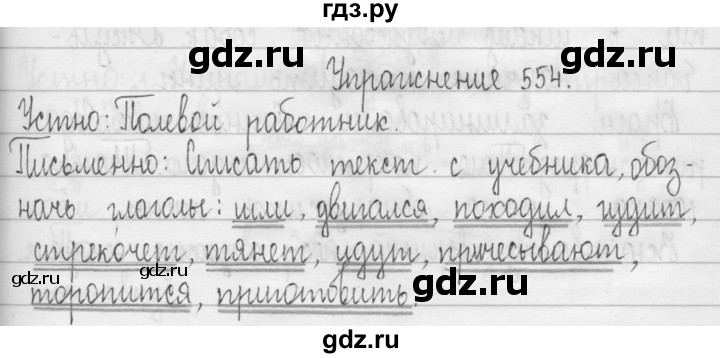 гдз.ру
gdz.ru gdz.ru
Упражнение 554.
Устно: Полевой работник.
gdz.ru
Письменно: Списать текст с учебника, обоз-
начь глаголы: шли, двигался, походил, гудит,
gdz.ru gdz.ru
стрекочет, тянет, идут, причесывают,
gdz.ru gdz.ru
торопится, приготовить.
gdz.ru
gdz.ru